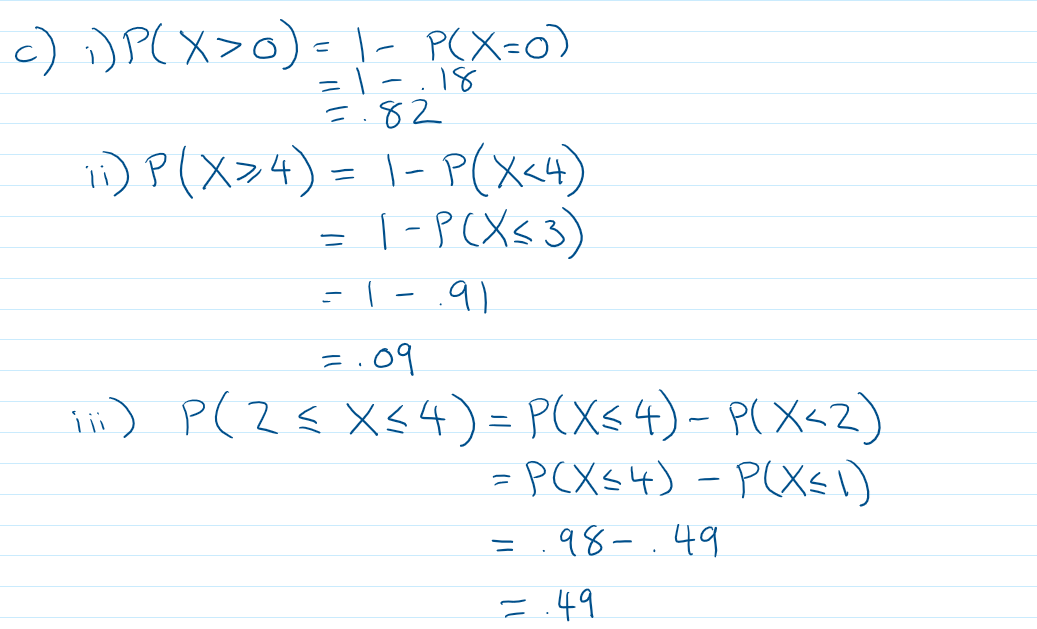 c) i) P(X>0) = 1 - P(X=0)
= 1 - .18
= .82
ii) P(X⩾4) = 1 - P(X<4)
= 1 - P(X≤3)
= 1 - .91
= .09
iii) P(2 ≤ X ≤ 4) = P(X≤4) - P(X<2)
= P(X≤4) - P(X≤1)
= .98 - .49
= .49